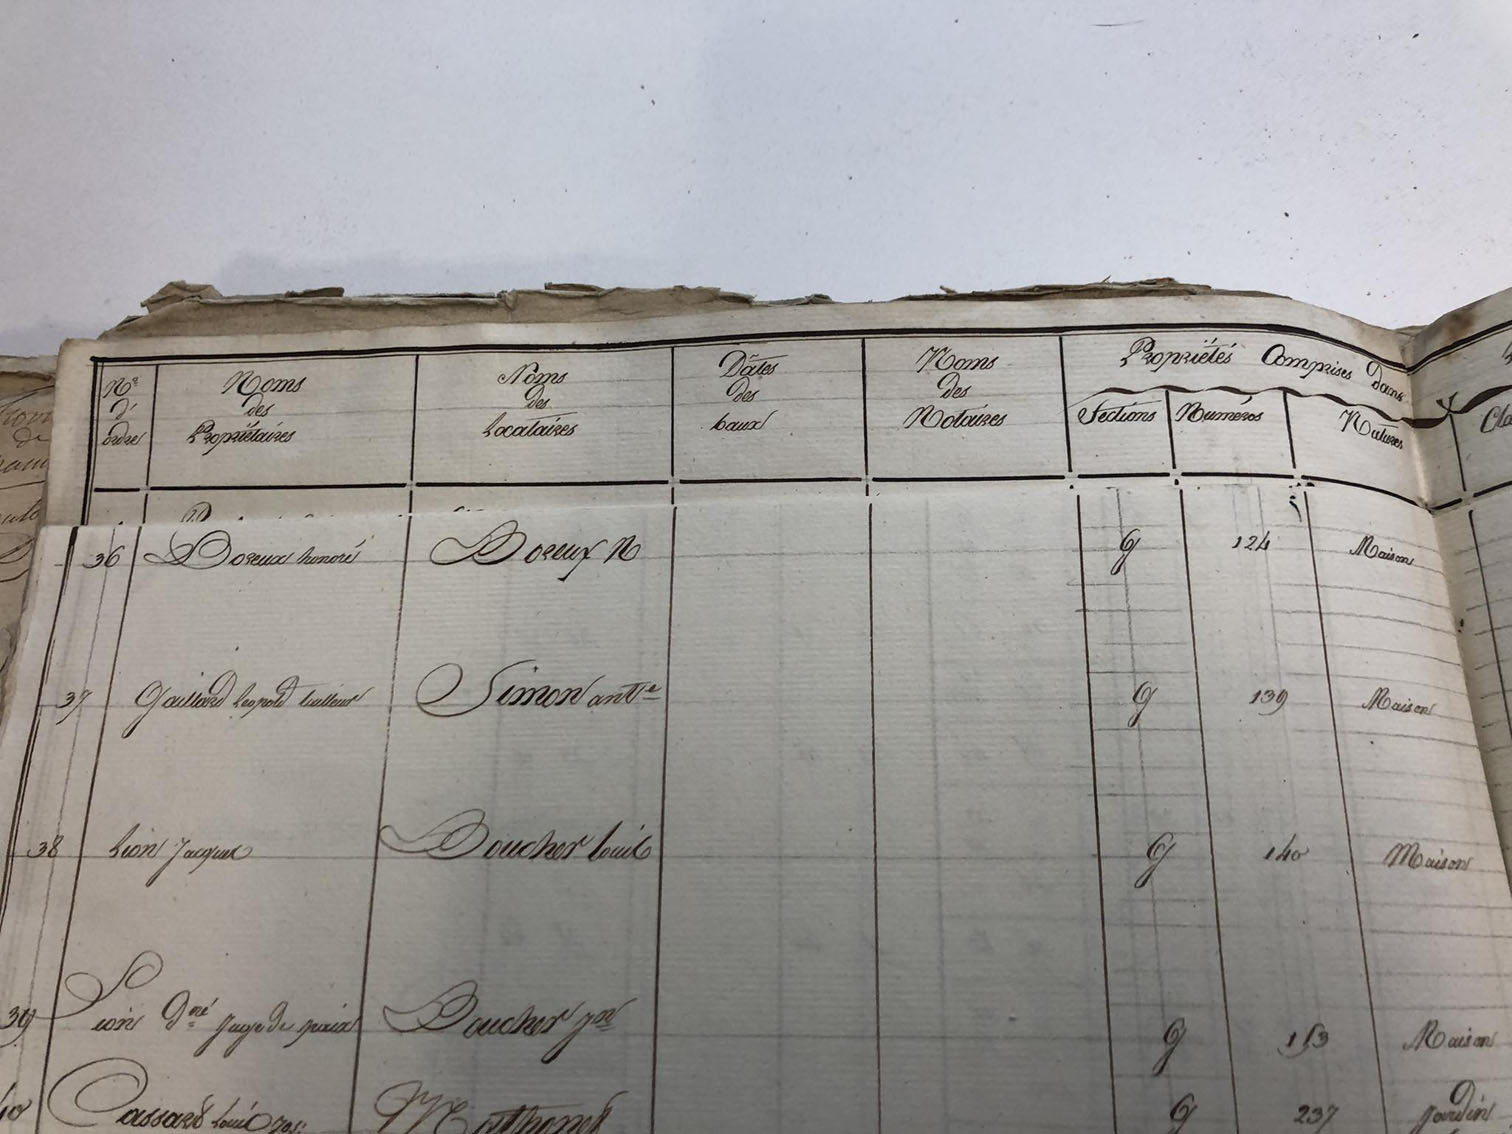 Nos
d'
ordre
Noms
des
Propriétaires
Noms
des
Locataires
Dates
des
baux
Noms
des
Notaires
Propriétés Comprises Dans
Sections Numéros Natures
36 Doreux honoré Doreux N G 124 Maison
37 Gaillard Leopold tailleur Simon ante G 139 Maison
38 Lion Jacques Boucher Louis G 140 Maison
39 Lion Dné Juge de paix Boucher Jn G 153 Maison
40 Cassard Louis Jos: G 237 Jardin